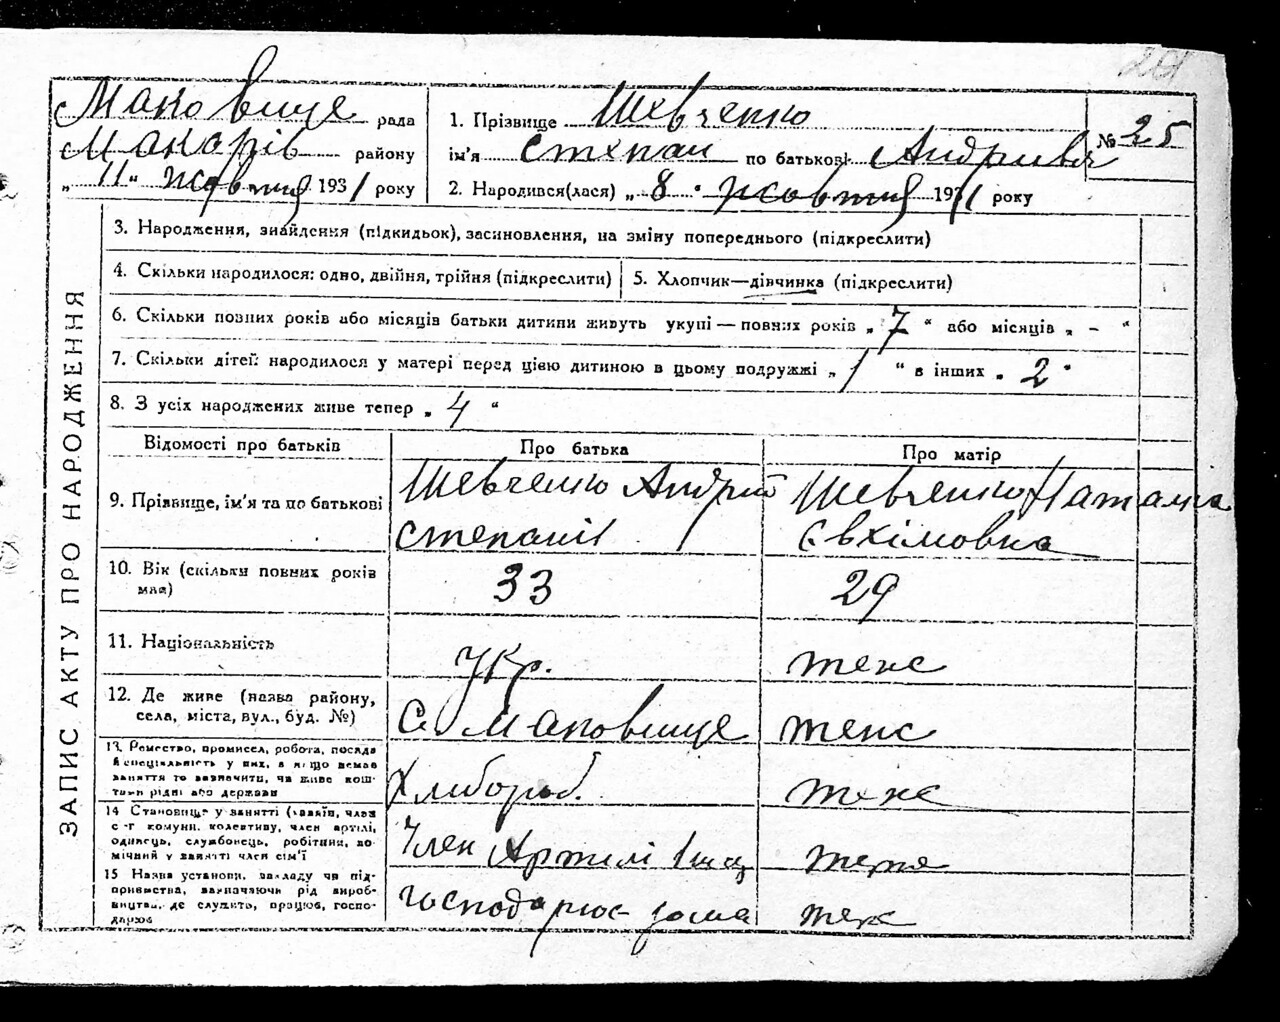 201
Маковище рада
Макарів району
„ 11 " жовтня 1931 року
1. Прізвище Шевченко
ім'я Степан по батькові Андрієвич
№ 25
2. Народився(лася) „ 8 " жовтня 1931 року
ЗАПИС АКТУ ПРО НАРОДЖЕННЯ
3. Народження, знайдення (підкидьок), засиновлення, на зміну попереднього (підкреслити)
4. Скільки народилося: одно, двійня, трійня (підкреслити)
5. Хлопчик—дівчинка (підкреслити)
6. Скільки повних років або місяців батьки дитини живуть укупі — повних років „ 7 " або місяців „ - "
7. Скільки дітей народилося у матері перед цією дитиною в цьому подружжі „ 1 " в інших „ 2 "
8. З усіх народжених живе тепер „ 4 "
Відомості про батьків
Про батька
Про матір
9. Прізвище, ім'я та по батькові
Шевченко Андрій
Степанів
Шевченко Наталка
Євхімовна
10. Вік (скільки повних років
має)
33
29
11. Національність
Укр.
теж
12. Де живе (назва району,
села, міста, вул., буд. №)
С Маковище
теж
13. Ремество, промисел, робота, посада
й спеціяльність у них, а якщо немає
заняття то зазначити, чи живе кош-
тами рідні або держави
Хлібороб.
теж
14 Становище у занятті (хазяїн, член
с-г комуни, колективу, член артілі,
одинець, службовець, робітник, по-
мічний у занятті член сім'ї
Член Артілі
15 Назва установи, закладу чи під-
приємства, зазначаючи рід вироб-
ництва, де служить, працює, госпо-
дарює
господарює дома
теж